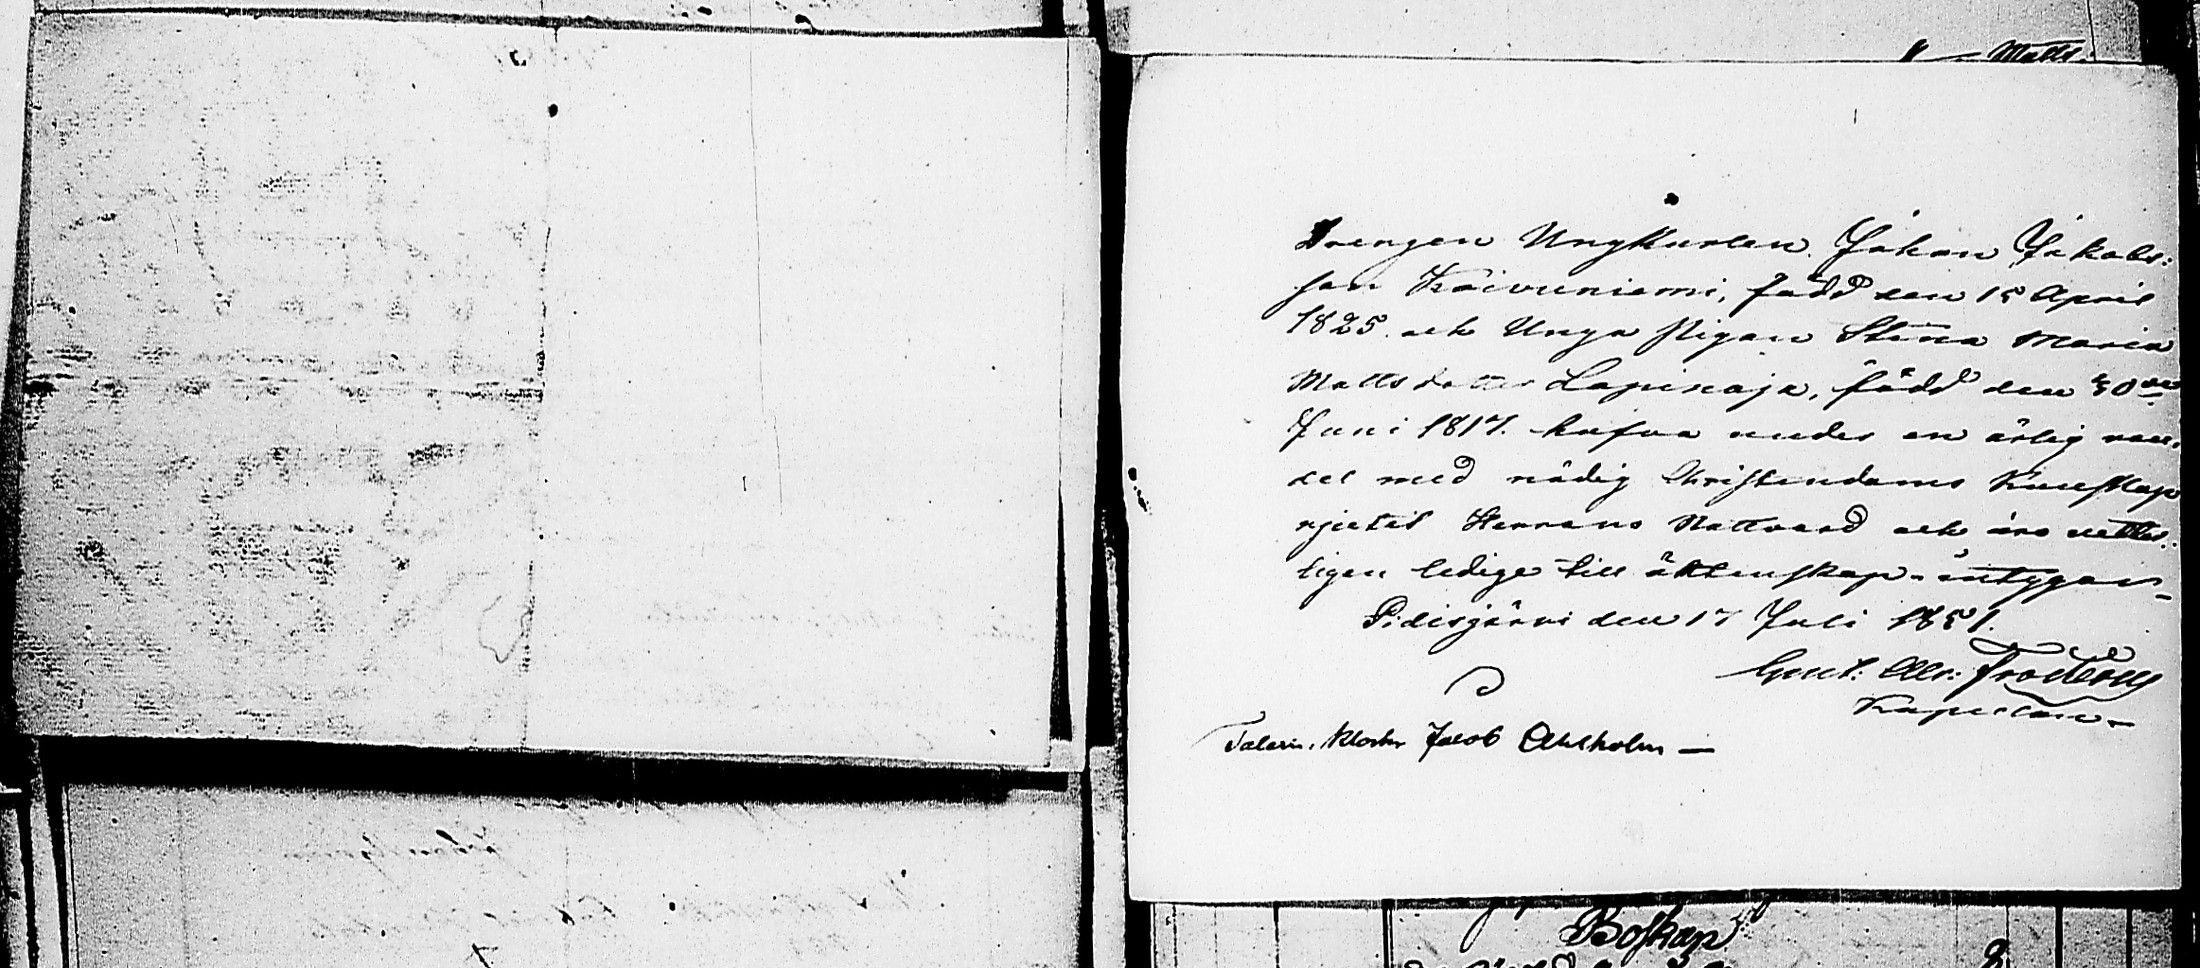 Matts
Drengen Ungkarlen Johan Jakobs:
son Koivuniemi, född den 15 April
1825. och Unga Pigan Stina Maria
Mattsdotter Lapinoja, född den 30de
Juni 1817. hafva under en ärlig van¬
del med nödig Christendoms Kunskap
njutit Herrans Nattvard och äro vetter:
ligen ledige till äktenskap intygar
Pidisjärvi den 17 Juli 1851.
Gust. Alr: Frosterus
Kapellan
Taleм. Klockr Jacob Ahlholm
Boskap